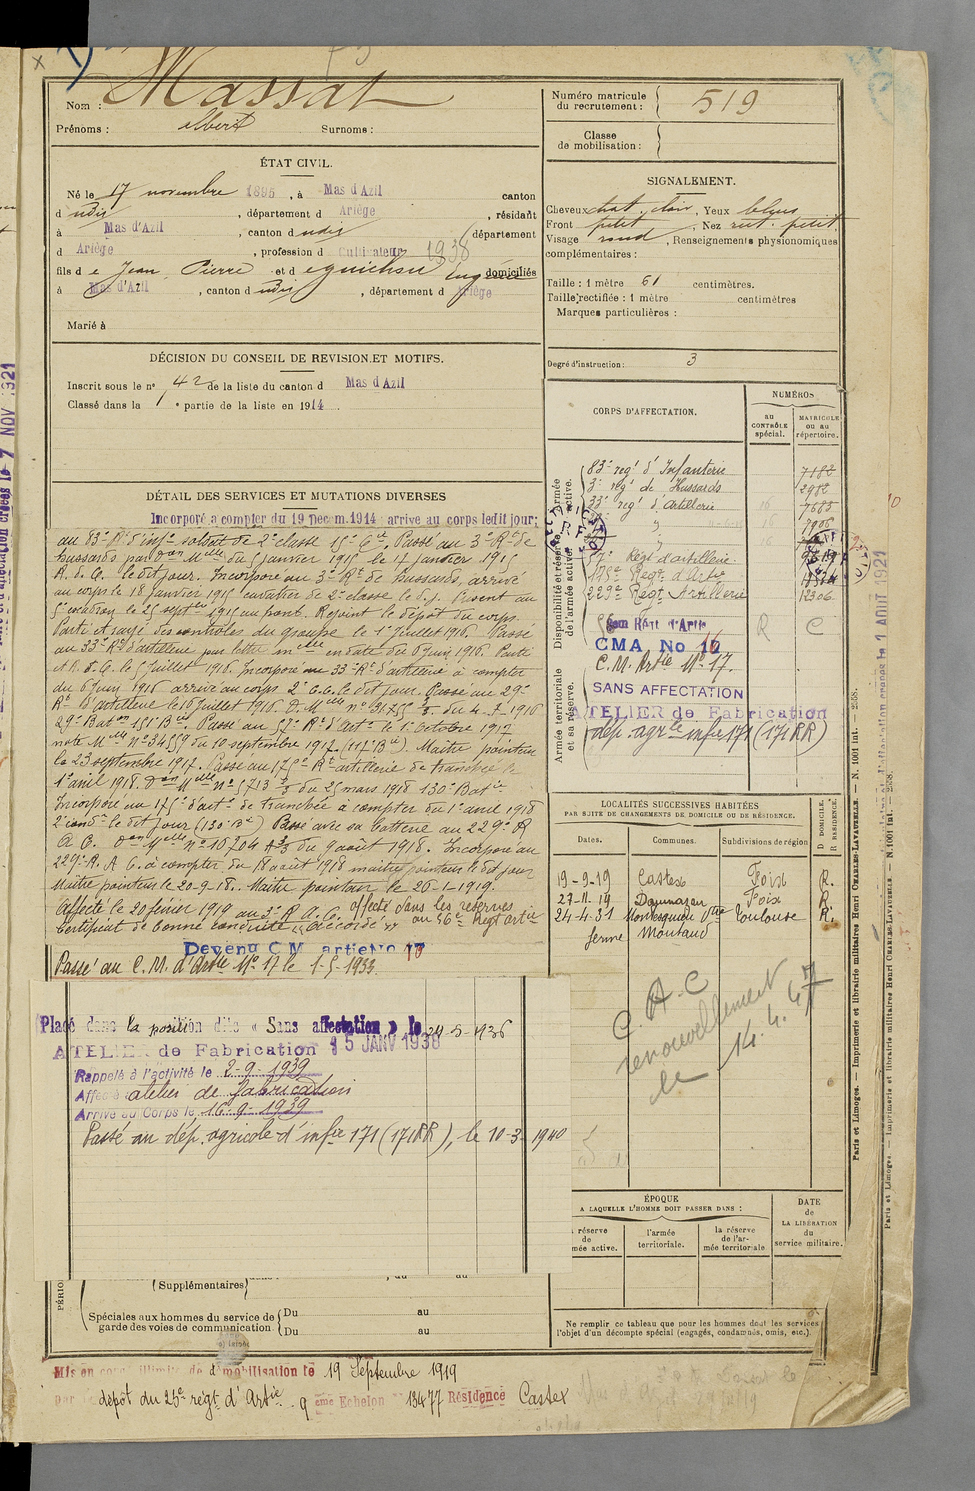 Nom : Massat
Prénoms : Albert Surnoms :
Numéro matricule
du recrutement : 519
Classe
de mobilisation :
ÉTAT CIVIL.
Né le 17 novembre 1895, à Mas d'Azil canton
d udis, département d Ariège, résidant
à Mas d'Azil, canton d udis département
d Ariège, profession d Cultivateur 1938
fils de Jean Pierre et d domiciliés
à Mas d'Azil, canton d udis, département d Ariège
Marié à
SIGNALEMENT.
Cheveux chat. clair, Yeux bleus
Front petit, Nez rect. petit
Visage rond, Renseignements physionomiques
complémentaires :
Taille : 1 mètre 61 centimètres.
Taille rectifiée : 1 mètre centimètres
Marques particulières :
Degré d'instruction : 3
DÉCISION DU CONSEIL DE REVISION ET MOTIFS.
Inscrit sous le n° 42 de la liste du canton d Mas d'Azil
Classé dans la 1e partie de la liste en 1914
DÉTAIL DES SERVICES ET MUTATIONS DIVERSES
Incorporé à compter du 19 Decem. 1914 arrivé au corps ledit jour;
au 83e Rt d'infie soldat de 2e classe 15e Cie. Passé au 3e Rt de
hussards par Don Melle du 5 janvier 1915 le 17 janvier 1915
A. d. C. le dit jour. Incorporé au 3e Rt de hussards, arrivé
au corps le 18 janvier 1915 cavalier de 2e classe le d. j. Présent au
5e escadron le 25 septbre 1915 au front. Rejoint le dépôt du corps.
Parti et rayé des contrôles du groupe le 1er Juillet 1916. Passé
au 33e Rt d'artillerie par lettre melle en date du 6 juin 1916. Parti
et R. d. C. le 5 juillet 1916. Incorporé au 33e Rt d'artillerie à compter
du 6 juin 1916 arrivé au corps 2e C. C. le dit jour. Passé au 29e
Rt d'artillerie le 16 juillet 1916. D. Melle n° du 4-7-1916
29e Baton 151e Bie. Passé au 57e Rt d'Artie le 1er octobre 1917
note Melle n° 34559 du 10 septembre 1917. (117e Bie). Maître pointeur
le 23 septembre 1917. Passé au 175e Rt artillerie de tranchée le
1er avril 1918. Don Melle n° 5713 3/3 du 25 mars 1918 130e Batie
Incorporé au 175e d'artie de tranchée à compter du 1er avril 1918
2e condr le dit jour (130e Bie) Passé avec sa batterie au 229e R
A. C. Don Melle n° 10204 A 3/3 du 9 août 1918. Incorporé au
229e R. A. C. à compter du 18 août 1918 maître pointeur le dit jour
Maître pointeur le 20-9-18. Maître pointeur le 26-1-1919.
Affecté le 20 février 1919 au 3e R. A. C. affecté dans les réserves
Certificat de bonne conduite "accordé" au 56e Regt artie
Devenu C M artie No 17
Passé au C. M. d'Artie N° 17 le 1-5-1933
Placé dans la position dite « Sans affectation » le 24-3-1936
ATELIER de Fabrication 15 JANV 1938
Rappelé à l'activité le 2-9-1939
Affecté atelier de fabrication
Arrivé au Corps le 16-9-1939
Passé au dép. agricole d'infie 171 (171 RR), le 10-3-1940
CORPS D'AFFECTATION.
NUMÉROS
au CONTRÔLE spécial.
MATRICULE ou au répertoire.
Disponibilité et réserve de l'armée active.
Armée active.
Armée territoriale et sa réserve.
83e regt d'Infanterie 7182
3e regt de Hussards 2982
33e regt d'Artillerie 16 7685
57e Regt d'artillerie
175e Regt d'Artie
229e Regt Artillerie 12306
R C
CMA No 16
C. M. Artie N° 17.
SANS AFFECTATION
ATELIER de Fabrication
dép. agrle infie 171 (171 RR)
LOCALITÉS SUCCESSIVES HABITÉES
PAR SUITE DE CHANGEMENTS DE DOMICILE OU DE RÉSIDENCE.
D DOMICILE.
R RÉSIDENCE.
Dates. Communes. Subdivisions de région
19-9-19 Castex Foix R.
27-11-19 Daumazan Foix R.
24-4-31 Montesquieu Vtre Toulouse R.
ferme Montaud
C. A. C
renouvellement
le 14. 4. 47
ÉPOQUE
A LAQUELLE L'HOMME DOIT PASSER DANS :
la réserve de l'armée active.
l'armée territoriale.
la réserve de l'armée territoriale
DATE de LA LIBÉRATION du service militaire.
(Supplémentaires)
Spéciales aux hommes du service de garde des voies de communication
Du au
Du au
Ne remplir ce tableau que pour les hommes dont les services
l'objet d'un décompte spécial (engagés, condamnés, omis, etc.).
Mis en congé illimité de démobilisation le 19 Septembre 1919
Par le dépôt du 23e regt d'Artie. 9 ème Echelon N° 13477 Résidence Castex
Paris et Limoges. — Imprimerie et librairie militaires Henri CHARLES-LAVAUZELLE. — N. 1001 int. — 2568.